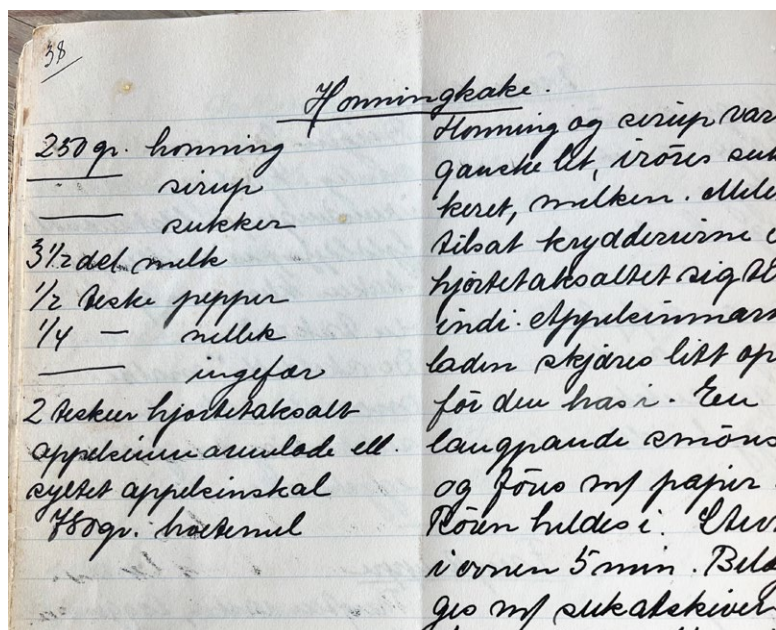 38
Honningkake.
250 gr. honning
" sirup
— sukker
3 1/2 del. melk
1/2 teske pepper
1/4 — nellik
— ingefær
2 teskeer hjortetaksalt
appelsinmarmelade ell.
syltet appelsinskal
750 gr. hvetemel
Honning og sirup var
ganske let, iröres suk
keret, melken. Mele
tilsat krydderierne
hjortetaksaltet sig
indi. Appelsinmar
laden skjæres litt op
för den has i. En
langpande smöres
og föres m/ papir.
Rören heldes i.
i ovnen 5 min.
ges m/ sukatskiver